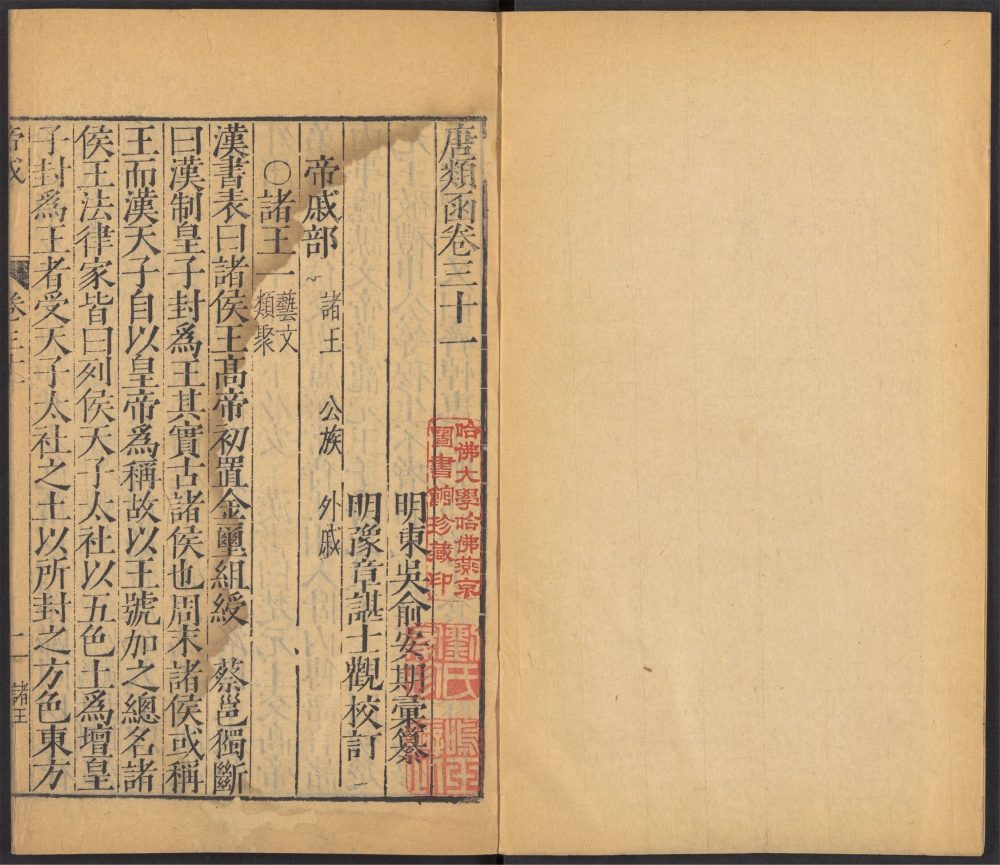 唐類函卷三十一
明東吳俞安期彙纂
明豫章諶士觀校訂
帝戚部 諸王 公族 外戚
○諸王一 藝文類聚
漢書表曰諸侯王高帝初置金璽組綬 蔡邕獨斷
曰漢制皇子封爲王其實古諸侯也周末諸侯或稱
王而漢天子自以皇帝爲稱故以王號加之總名諸
侯王法律家皆曰列侯天子太社以五色土爲壇皇
子封爲王者受天子太社之土以所封之方色東方
帝戚 卷三十一 一 諸王
哈佛大學哈佛燕京
圖書館珍藏印